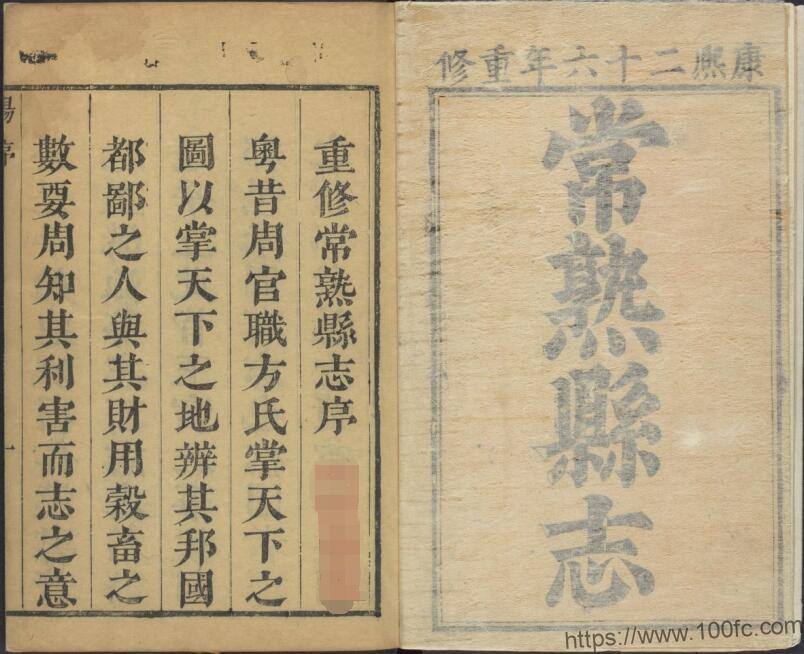 康熙二十六年重修
常熟縣志
重修常熟縣志序
粤昔周官職方氏掌天下之
圖以掌天下之地辨其邦國
都鄙之人與其財用榖畜之
數要周知其利害而志之意
序
一
https://www.100fc.com